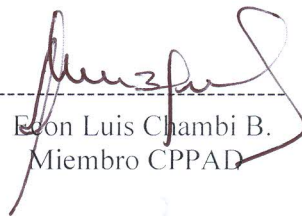 Econ Luis Chambi B.
Miembro CPPAD